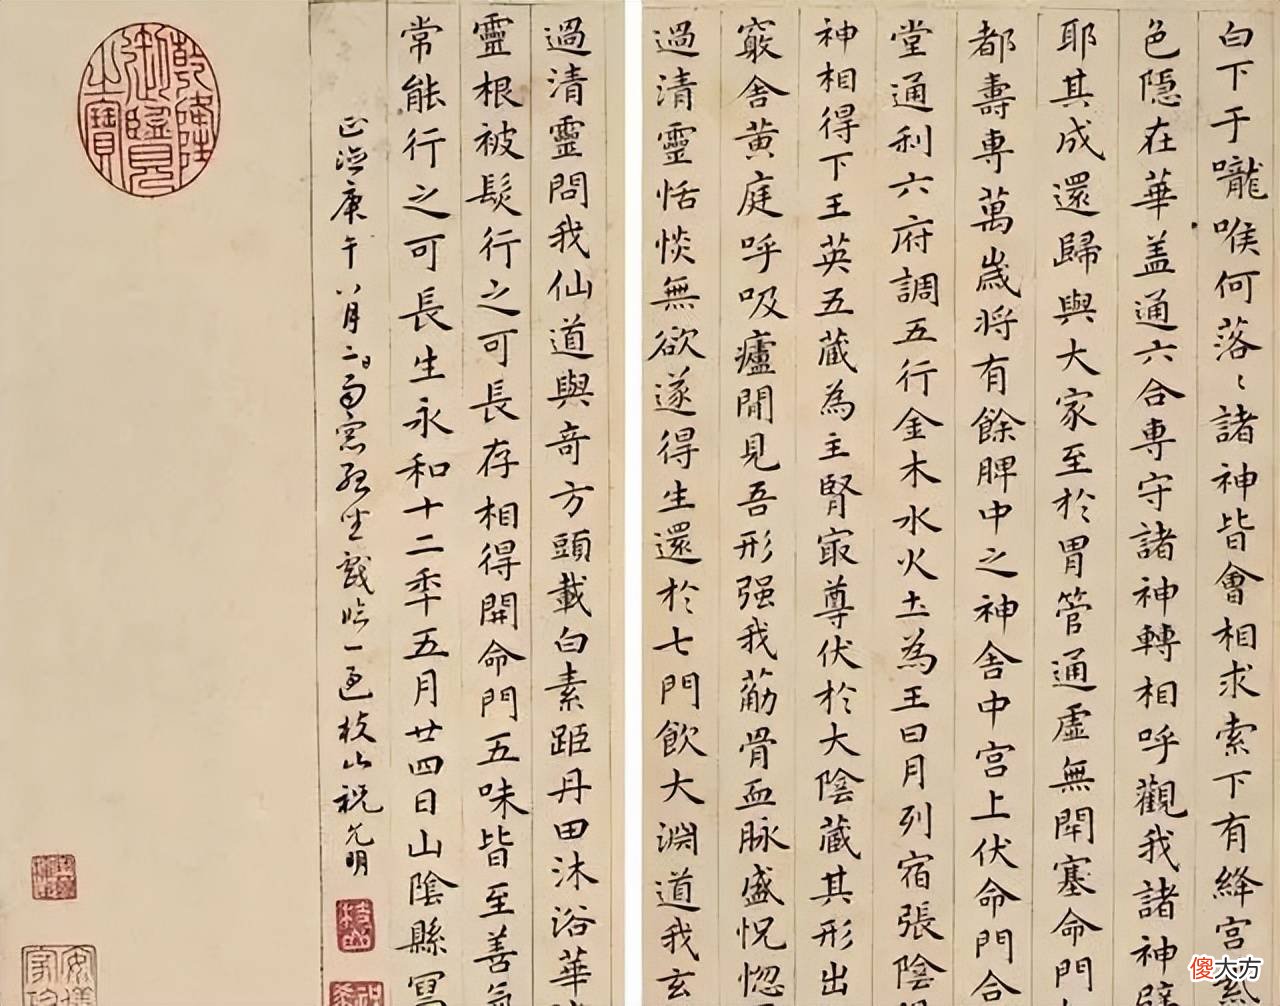 白下于嚨喉何落〻諸神皆會相求索下有絳宮紫
色隱在華盖通六合專守諸神轉相呼觀我諸神辟
耶其成還歸與大家至於胃管通虛無閉塞命門
都壽專萬歳將有餘脾中之神舍中宮上伏命門合
堂通利六府調五行金木水火土為王日月列宿張陰
神相得下王英五藏為主腎㝡尊伏於大陰藏其形出
竅舍黄庭呼吸廬間見吾形强我筋骨血脉盛怳惚
過清靈恬惔無欲遂得生還於七門飲大淵道我玄
過清靈問我仙道與奇方頭載白素距丹田沐浴華
靈根被髮行之可長存相得開命門五味皆至善氣
常能行之可長生永和十二秊五月廿四日山陰縣冩
正德庚午八月二日雨窓孤坐戲臨一過枝山祝允明
乾隆御覽之寶
傻大方